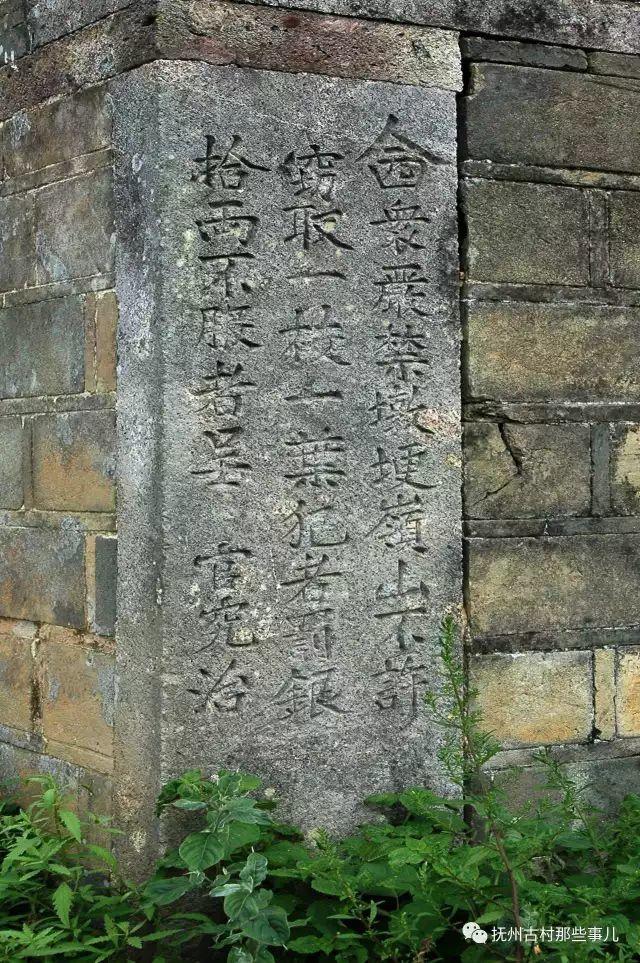 衆嚴禁墩埂嶺山不許
窃取一枝一葉犯者罰銀
拾兩不服者呈 官究治
抚州古村那些事儿